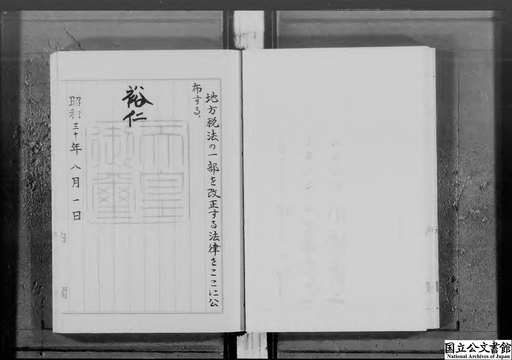 地方税法の一部を改正する法律をここに公
布する。
裕仁
天皇
御璽
昭和三十年八月一日
国立公文書館
National Archives of Japan